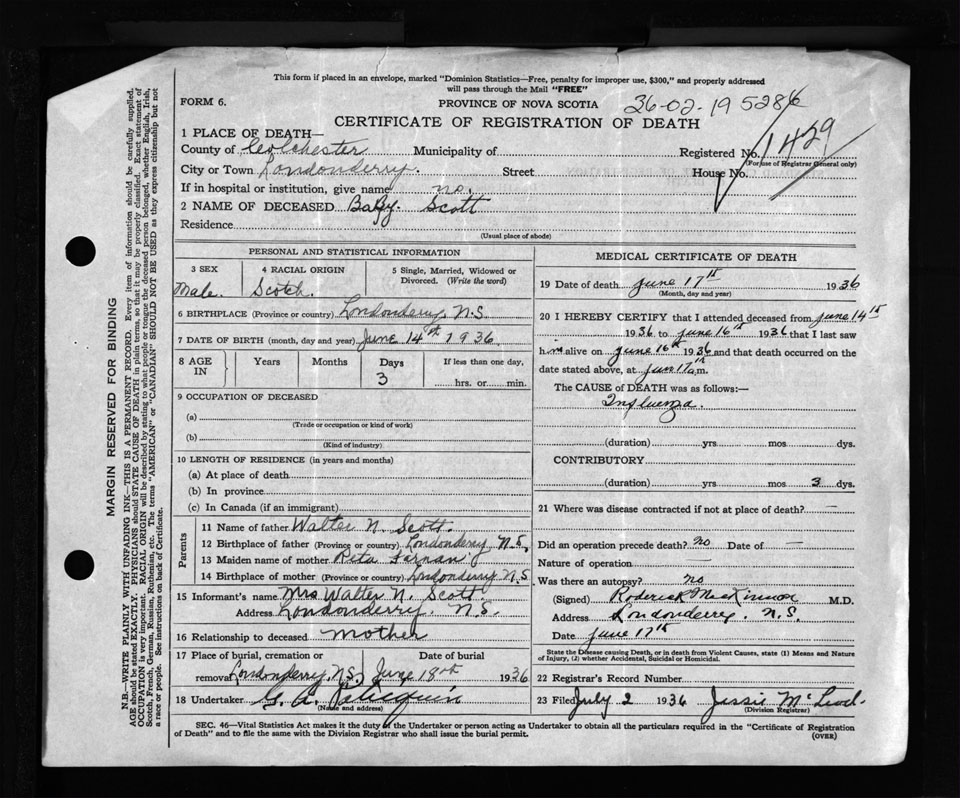 This form if placed in an envelope, marked "Dominion Statistics—Free, penalty for improper use, $300," and properly addressed
will pass through the Mail "FREE"
FORM 6.
PROVINCE OF NOVA SCOTIA
36-02-195286
CERTIFICATE OF REGISTRATION OF DEATH
1429
1 PLACE OF DEATH—
County of Colchester Municipality of Registered No.
(For use of Registrar General only)
City or Town Londonderry. Street House No.
If in hospital or institution, give name no.
2 NAME OF DECEASED Baby. Scott
Residence
(Usual place of abode)
PERSONAL AND STATISTICAL INFORMATION
3 SEX
Male.
4 RACIAL ORIGIN
Scotch.
5 Single, Married, Widowed or
Divorced. (Write the word)
6 BIRTHPLACE (Province or country) Londonderry, N.S.
7 DATE OF BIRTH (month, day and year) June 14th 1936
8 AGE
IN
Years
Months
Days
3
If less than one day,
hrs. or min.
9 OCCUPATION OF DECEASED
(a)
(Trade or occupation or kind of work)
(b)
(Kind of industry)
10 LENGTH OF RESIDENCE (in years and months)
(a) At place of death
(b) In province
(c) In Canada (if an immigrant)
Parents
11 Name of father Walter N. Scott.
12 Birthplace of father (Province or country) Londonderry N.S.
13 Maiden name of mother Reta
14 Birthplace of mother (Province or country) Londonderry N.S
15 Informant's name Mrs Walter N. Scott.
Address Londonderry. N.S.
16 Relationship to deceased Mother
17 Place of burial, cremation or
removal Londonderry, N.S.
Date of burial
June 18th 1936
18 Undertaker G. A.
(Name and address)
MEDICAL CERTIFICATE OF DEATH
19 Date of death June 17th 1936
(Month, day and year)
20 I HEREBY CERTIFY that I attended deceased from June 14th
1936 to June 16th 1936 that I last saw
him alive on June 16th 1936 and that death occurred on the
date stated above, at June 17 a.m.
The CAUSE of DEATH was as follows:—
Influenza.
(duration) yrs mos dys.
CONTRIBUTORY
(duration) yrs mos 3 dys.
21 Where was disease contracted if not at place of death? —
Did an operation precede death? no Date of —
Nature of operation —
Was there an autopsy? no
(Signed) Roderick MacKinnon M.D.
Address Londonderry. N.S.
Date June 17th
State the Disease causing Death, or in death from Violent Causes, state (1) Means and Nature
of Injury, (2) whether Accidental, Suicidal or Homicidal.
22 Registrars Record Number
23 Filed July 2 1936 Jessie McLeod.
(Division Registrar)
SEC. 46—Vital Statistics Act makes it the duty of the Undertaker or person acting as Undertaker to obtain all the particulars required in the "Certificate of Registration
of Death" and to file the same with the Division Registrar who shall issue the burial permit.
(OVER)
MARGIN RESERVED FOR BINDING
N.B.—WRITE PLAINLY WITH UNFADING INK—THIS IS A PERMANENT RECORD. Every item of information should be carefully supplied.
AGE should be stated EXACTLY. PHYSICIANS should STATE CAUSE OF DEATH in plain terms, so that it may be properly classified. Exact statement of
OCCUPATION is very important. RACIAL ORIGIN will be described by stating to what people or tongue the deceased person belonged, whether English, Irish,
Scotch, French, German, Russian, Ruthenian, etc. The terms "AMERICAN" or "CANADIAN" SHOULD NOT BE USED as they express citizenship but not
a race or people. See instructions on back of Certificate.